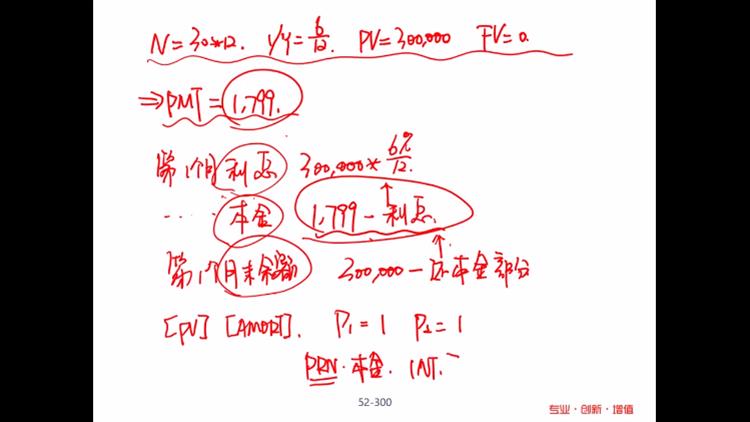 N=30*12. I/Y=6/12. PV=300,000 FV=0.
⇒PMT=1,799.
第1个月利息 300,000*6%/12.
.... 本金 1,799-利息.
第1个月末余额 300,000-还本金部分
[PV] [AMORT]. P1=1 P2=1
PRN.本金. INT.
52-300
专业·创新·增值